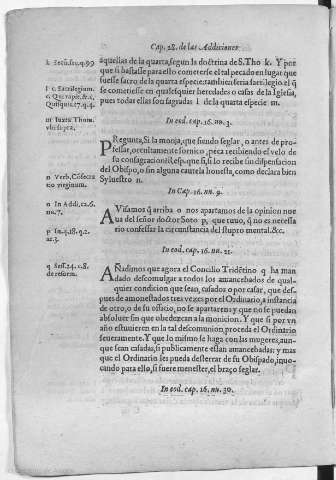 Cap. 28. de las Addiciones
k Secũ. suq. q.99
l c. Sacrilegium.
c. Qui rapit. &c.
Quisquis. 17. q. 4.
m Iuxta Thom.
vbi supra.
aquellas de la quarta, segun la doctrina de S. Tho k. Y por
que si bastasse para ello cometerse el tal pecado en lugar que
fuesse sacro de la quarta especie: tambien seria sacrilegio. el q̃
se cometiesse en qualesquier heredades o casas de la Iglesia,
pues todas ellas son sagradas l de la quarta especie m.
In eod. cap. 16. nu. 3.
n Verb. Cõsecra
tio virginum.
PRegunta, Si la monja, que siendo seglar, o antes de pro-
fessar, ocultamente fornico, peca recibiendo el velo de
su consagracion: & resp. que si, si lo recibe sin dispensacion
del Obispo, o sin alguna cautela honesta, como declara bien
Syluestro n.
In Cap. 16. nu. 9.
o In Addi. ca. 6.
nu. 7.
p In 4. d. 18. q. 2.
ar. 3.
AVisamos q̃ arriba o nos apartamos de la opinion nue
ua del señor doctor Soto p, que tuuo, q̃ no es necessa
rio confessar la circunstancia del stupro mental. &c.
In eod. cap. 16. nu. 21.
q Sess. 24. c. 8.
de reform.
AÑadimos que agora el Concilio Tridẽtino q ha man
dado descomulgar a todos los amancebados de qual-
quier condicion que sean, casados o por casar, que des-
pues de amonestados tres vezes por el Ordinario, a instancia
de otro, o de su officio, no se apartaren: y que no se puedan
absoluer sin que obedezcan a la monicion. Y que si por vn
año estuuieren en la tal descomunion proceda el Ordinario
seueramente. Y que lo mismo se haga con las mugeres, aun-
que sean casadas, si publicamente estan amancebadas: y mas
que el Ordinario les pueda desterrar de su Obispado, inuo-
cando para ello, si fuere menester, el braço seglar.
In eod. cap. 16. nu. 30.